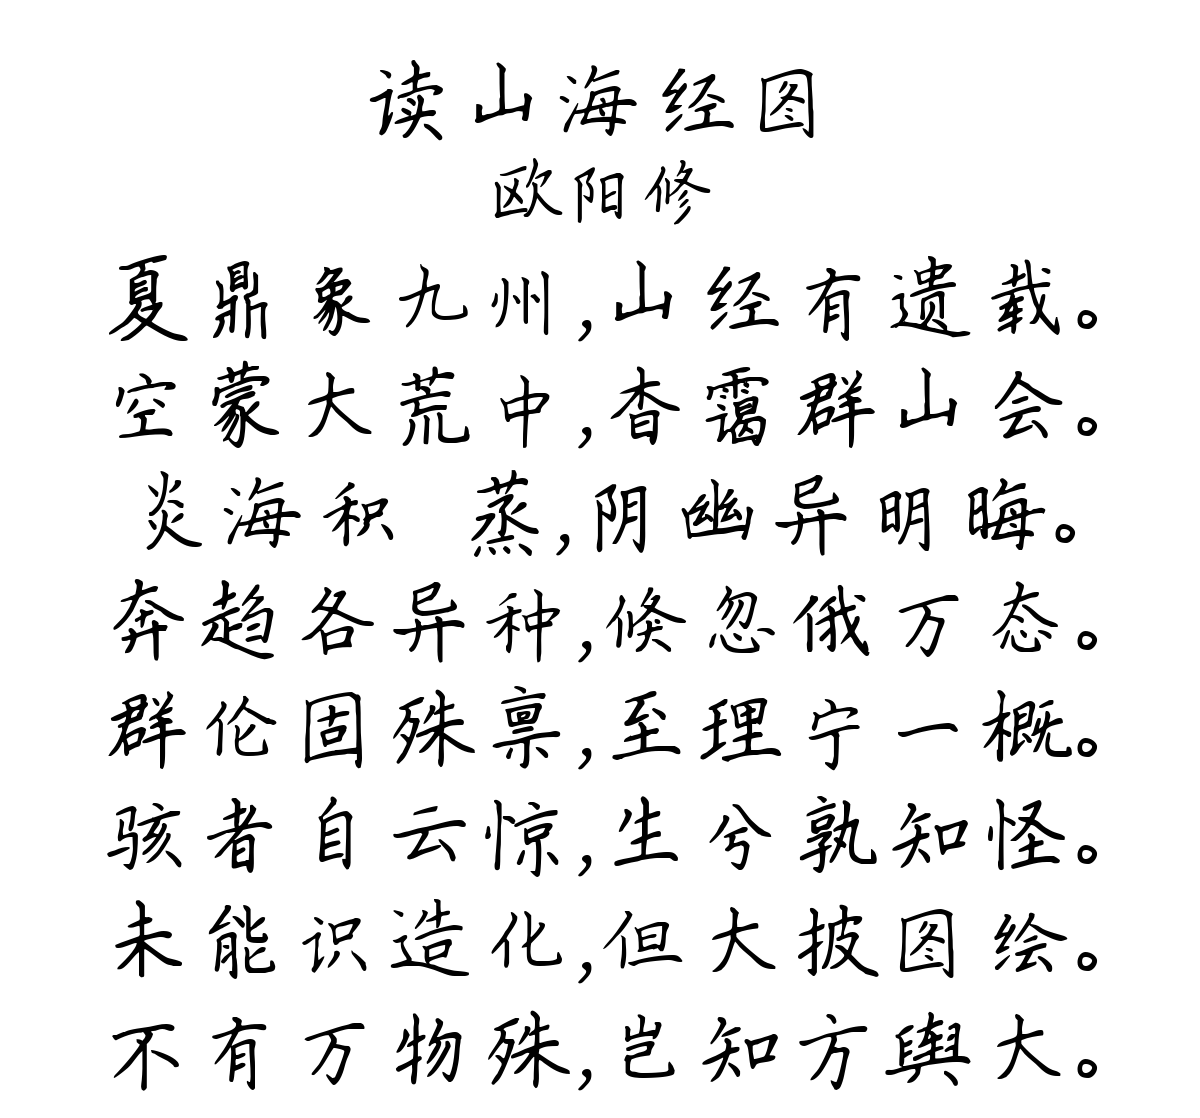 读山海经图
欧阳修
夏鼎象九州,山经有遗载。
空蒙大荒中,杳霭群山会。
炎海积 蒸,阴幽异明晦。
奔趋各异种,倏忽俄万态。
群伦固殊禀,至理宁一概。
骇者自云惊,生兮孰知怪。
未能识造化,但大披图绘。
不有万物殊,岂知方舆大。